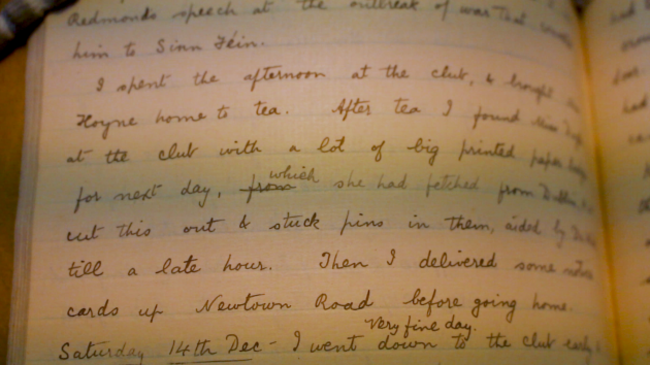 Redmonds speech at the outbreak of war that
him to Sinn Féin.
I spent the afternoon at the club, & brought
Hoyne home to tea. After tea I found Miss
at the club with a lot of big printed paper
for next day, from which she had fetched from Dublin
cut this out & stuck pins in them, aided by
till a late hour. Then I delivered some
cards up Newtown Road before going home.
Very fine day.
Saturday 14th Dec - I went down to the club early